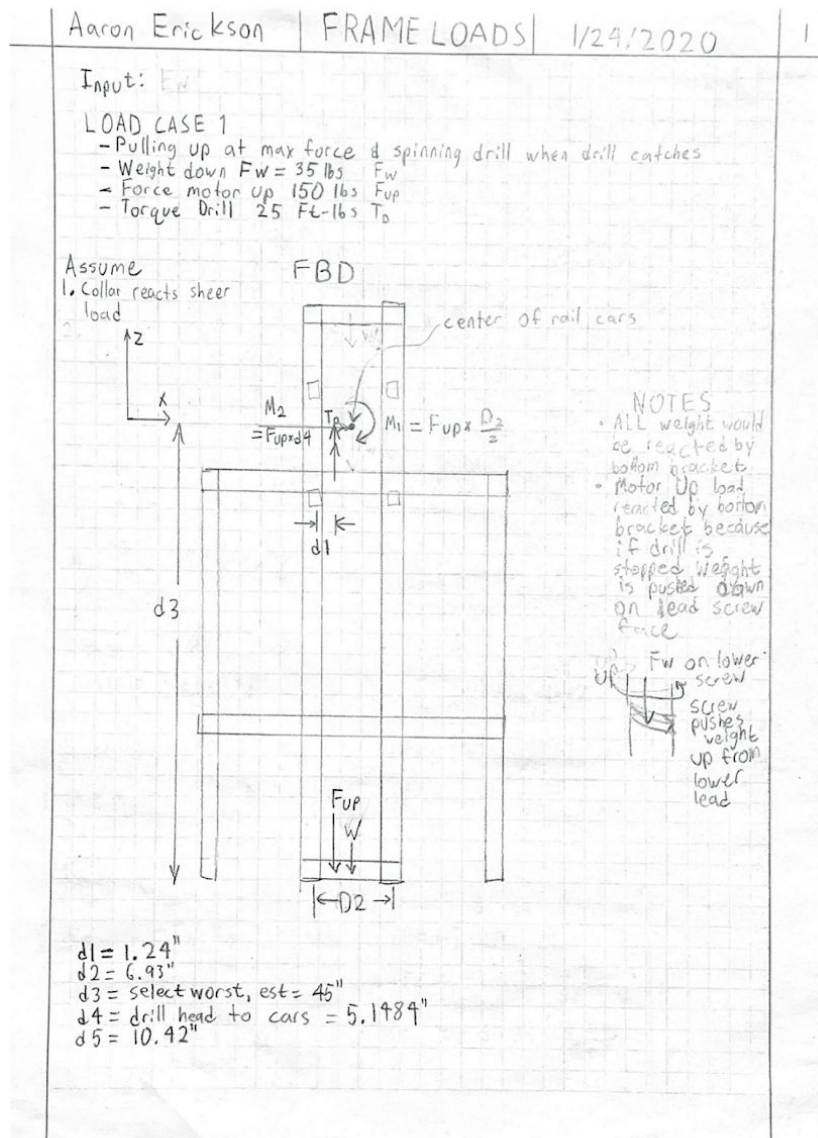 Aaron Erickson FRAME LOADS 1/24/2020 1
Input: Fw
LOAD CASE 1
- Pulling up at max force & spinning drill when drill catches
- Weight down Fw = 35 lbs Fw
- Force motor up 150 lbs Fup
- Torque Drill 25 Ft-lbs TD
Assume
1. Collar reacts sheer
load
2.
FBD
center of rail cars
Z
X
M2
= Fup x d4
TD
M1 = Fup x D2/2
d1
d3
Fup
W
D2
NOTES
• ALL weight would
be reacted by
bottom bracket
• Motor Up load
reacted by bottom
bracket because
if drill is
stopped weight
is pusted down
on lead screw
face
Fw on lower
screw
up
screw
pushes
weight
up from
lower
lead
d1 = 1.24"
d2 = 6.93"
d3 = select worst, est = 45"
d4 = drill head to cars = 5.1484"
d5 = 10.42"